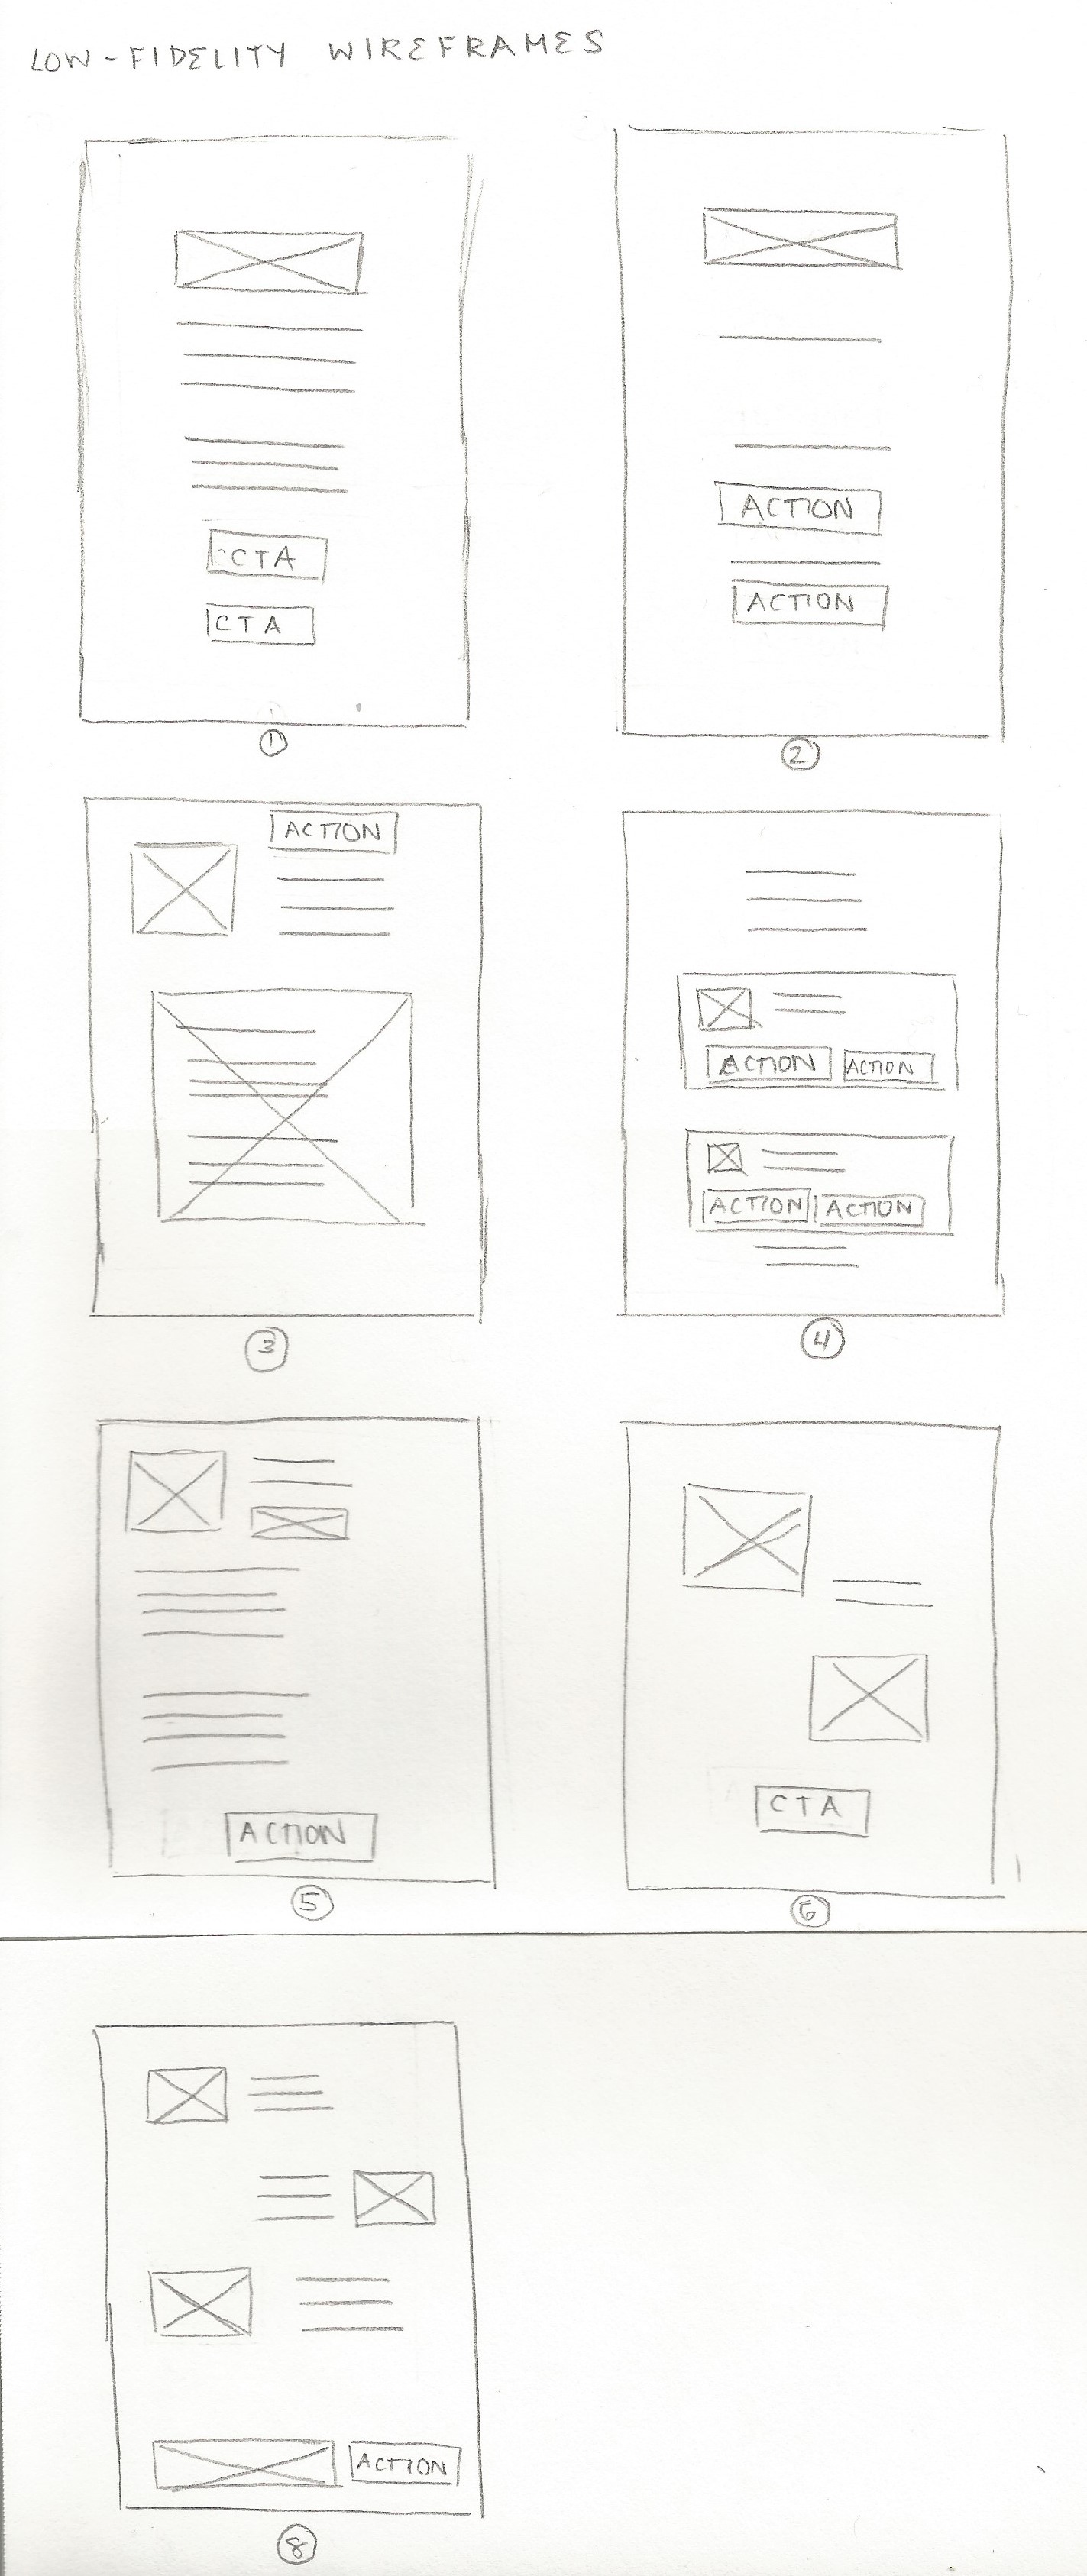 LOW-FIDELITY WIREFRAMES
CTA
CTA
1
ACTION
ACTION
2
ACTION
3
ACTION ACTION
ACTION ACTION
4
ACTION
5
CTA
6
ACTION
8